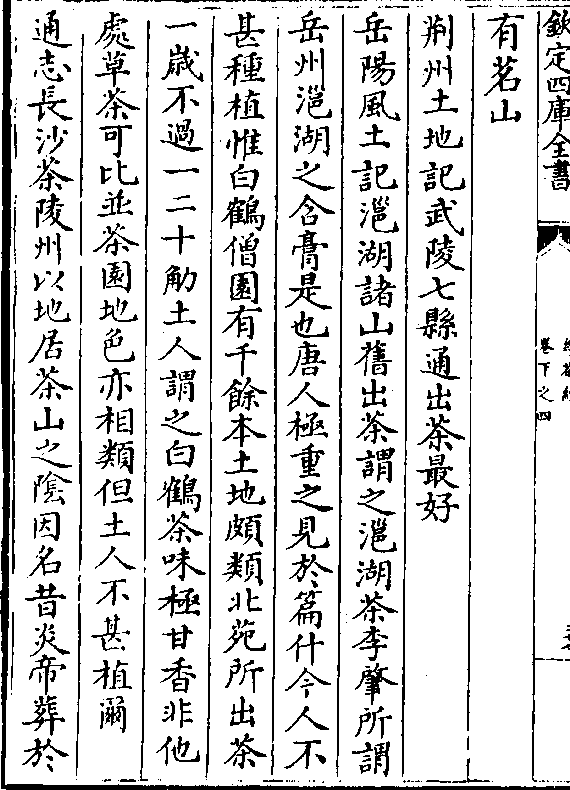 欽定四庫全書
卷下之四
有茗山
荊州土地記武陵七縣通出茶最好
岳陽風土記㴩湖諸山舊出茶謂之㴩湖茶李肇所謂
岳州㴩湖之含膏是也唐人極重之見於篇什今人不
甚種植惟白鶴僧園有千餘本土地頗類北苑所出茶
一歲不過一二十觔土人謂之白鶴茶味極甘香非他
處草茶可比並茶園地色亦相類但土人不甚植爾
通志長沙茶陵州以地居茶山之陰因名昔炎帝葬於